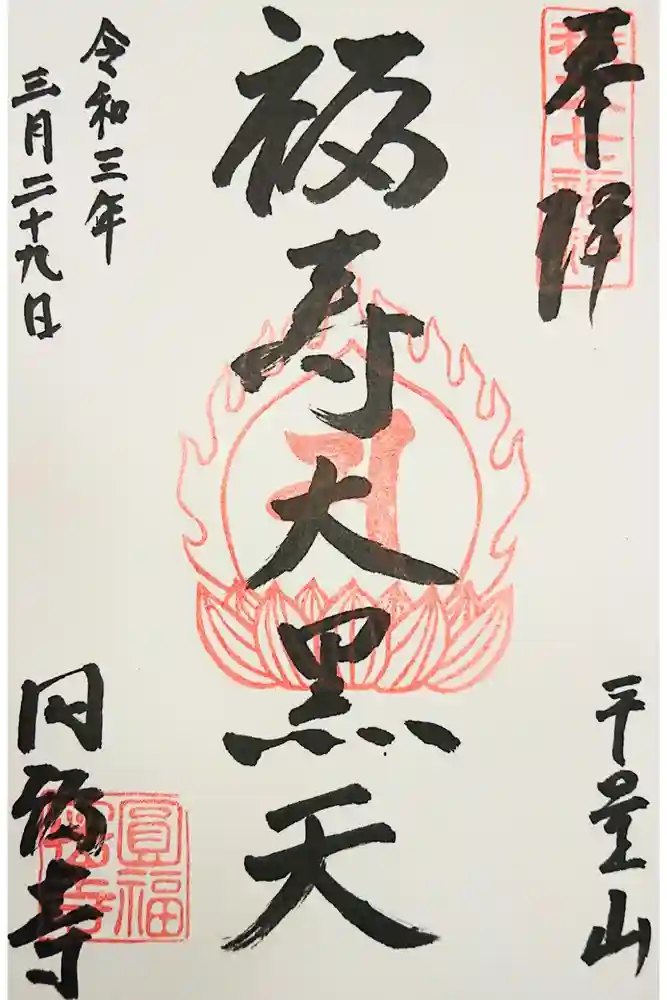 奉拝
福寿大黒天
平量山
令和三年
三月二十九日
円福寺
圓福